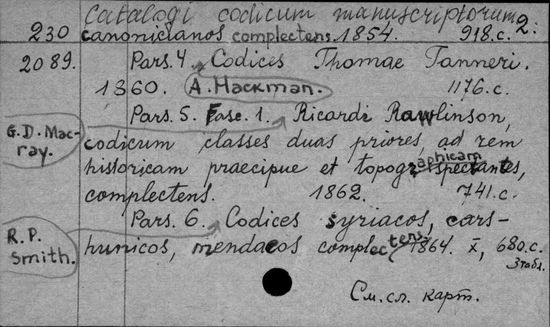 catalogi codicum manuscriptorum 2:
230 canonicianos complectens. 1854. 918.c.
2089. Pars. 4. Codices Thomae Tanneri.
1360. A. Hackman. 1176.c.
Pars. 5. Fasc. 1. Ricardi Rawlinson,
G.D. Mac-
ray.
codicum classes duas priores, ad rem
historicam praecipue et topographicam spectantes,
complectens. 1862. 741.c.
Pars. 6. Codices syriacos, cars-
R.P.
Smith.
hunicos, mendaeos complectens. 1864. X, 680.c.
3 табл.
См. сл. карт.